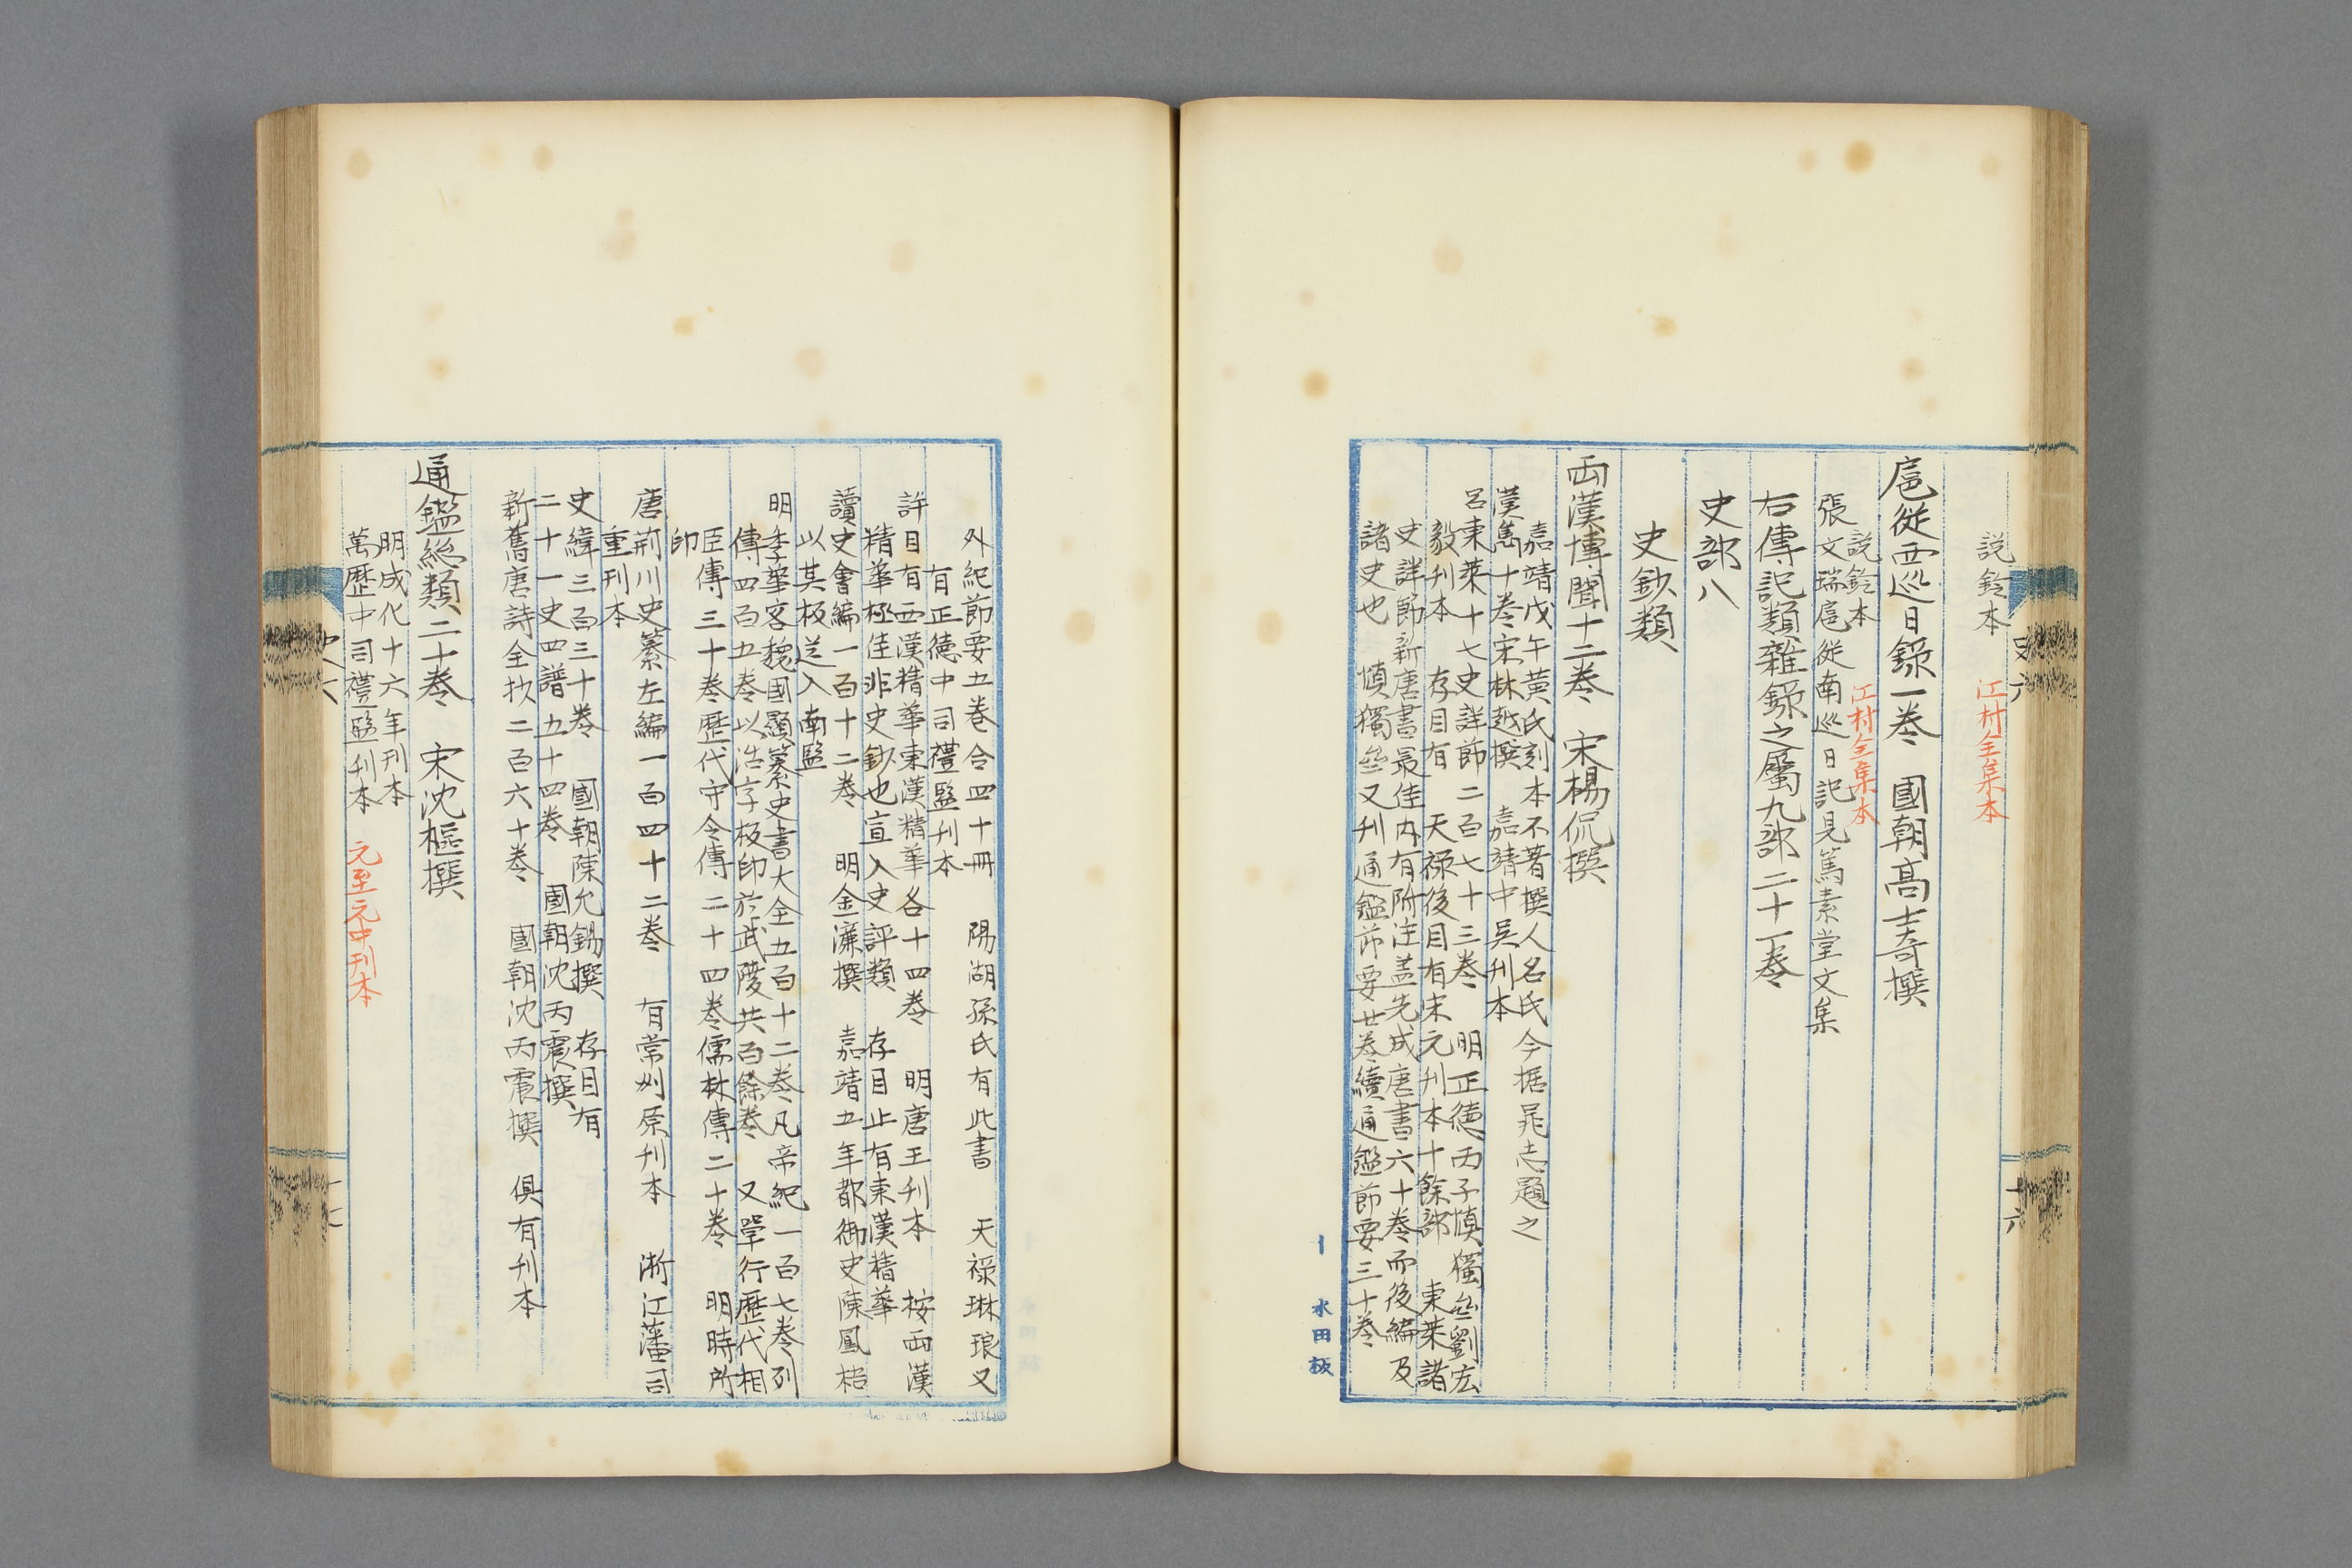 說鈴本　江村全集本
扈從西巡日錄一卷　國朝高士奇撰
說鈴本　江村全集本
張文瑞扈從南巡日記見篤素堂文集
右傳記類雜錄之屬九部二十一卷
史部八
史鈔類
兩漢博聞十二卷　宋楊侃撰
嘉靖戊午黃氏刻本不著撰人名氏今据晁志題之
漢雋十卷宋林越撰　嘉靖中吳刊本
呂東萊十七史詳節二百七十三卷　明正德丙子慎獨齋劉宏
毅刊本　存目有　天祿後目有宋元刊本十餘部　東萊諸
史詳節新唐書最佳內有附注盖先成唐書六十卷而後編及
諸史也　慎獨齋又刊通鑑節要廿卷續通鑑節要三十卷
水田板
外紀節要五卷合四十冊　陽湖孫氏有此書　天祿琳琅又
有正德中司禮監刊本
許目有西漢精華東漢精華各十四卷　明唐王刊本　桉西漢
精華極佳非史鈔也宣入史評類　存目止有東漢精華
讀史會編一百十二卷　明金濂撰　嘉靖五年都御史陳鳳梧
以其板送入南監
明季華容魏國顯纂史書大全五百十二卷凡帝紀一百七卷列
傳四百五卷以活字板印於武陵共百餘卷　又單行歷代相
臣傳三十卷歷代守令傳二十四卷儒林傳二十卷　明時所
印
唐荊川史纂左編一百四十二卷　有常州原刊本　淅江藩司
重刊本
史緯三百三十卷　國朝陳允錫撰　存目有
二十一史四譜五十四卷　國朝沈丙震撰
新舊唐詩全抄二百六十卷　國朝沈丙震撰　俱有刊本
通鑑總類二十卷　宋沈樞撰
明成化十六年刊本
萬歷中司禮監刊本　元至元中刊本